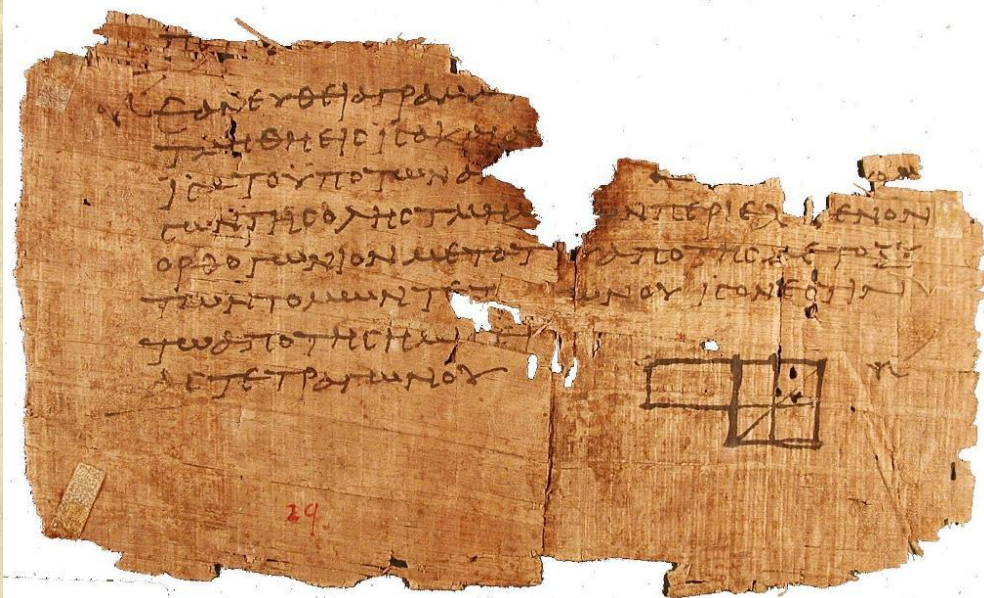 ΕΑΝΕΥΘΕΙΑΓΡΑΜΜ
ΤΜΗΘΗΕΙCΙCΑΚΑΙΑ
ΙCΑΤΟΥΠΟΤΩΝΑ
CΩΝΤΗCΟΛΗCΤΜΗΜ ΩΝΠΕΡΙΕΧ ΜΕΝΟΝ
ΟΡΘΟΓΩΝΙΟΝΜΕΤΑΤΟ ΑΠΟΤΗCΜΕΤΟΞΥ
ΤΩΝΤΟΜΩΝΤΕΤ ΩΝΟΥΙCΟΝΕCΤΙΝ
ΤΩΑΠΟΤΗCΗΜΙCΕΙ
ΑCΤΕΤΡΑΓΩΝΟΥ
29